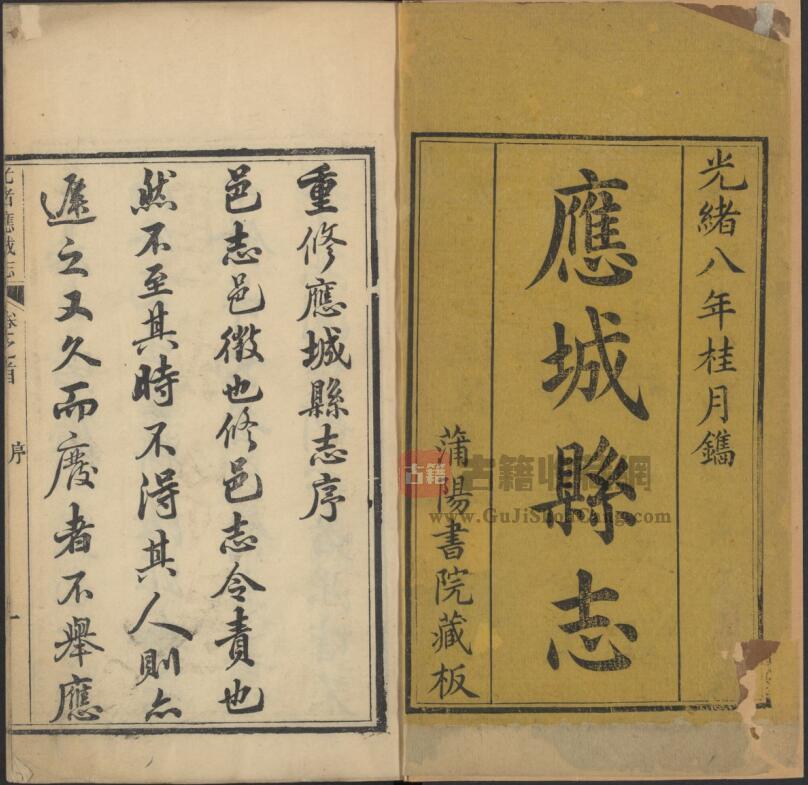 光緒八年桂月鐫
應城縣志
蒲陽書院藏板
重修應城縣志序
邑志邑徵也修邑志令責也
然不至其時不得其人則亦
遲之又久而廢者不舉應
光緒應城志
卷之首
序
一
古籍
古籍收藏網
www.GuJiShouCang.com